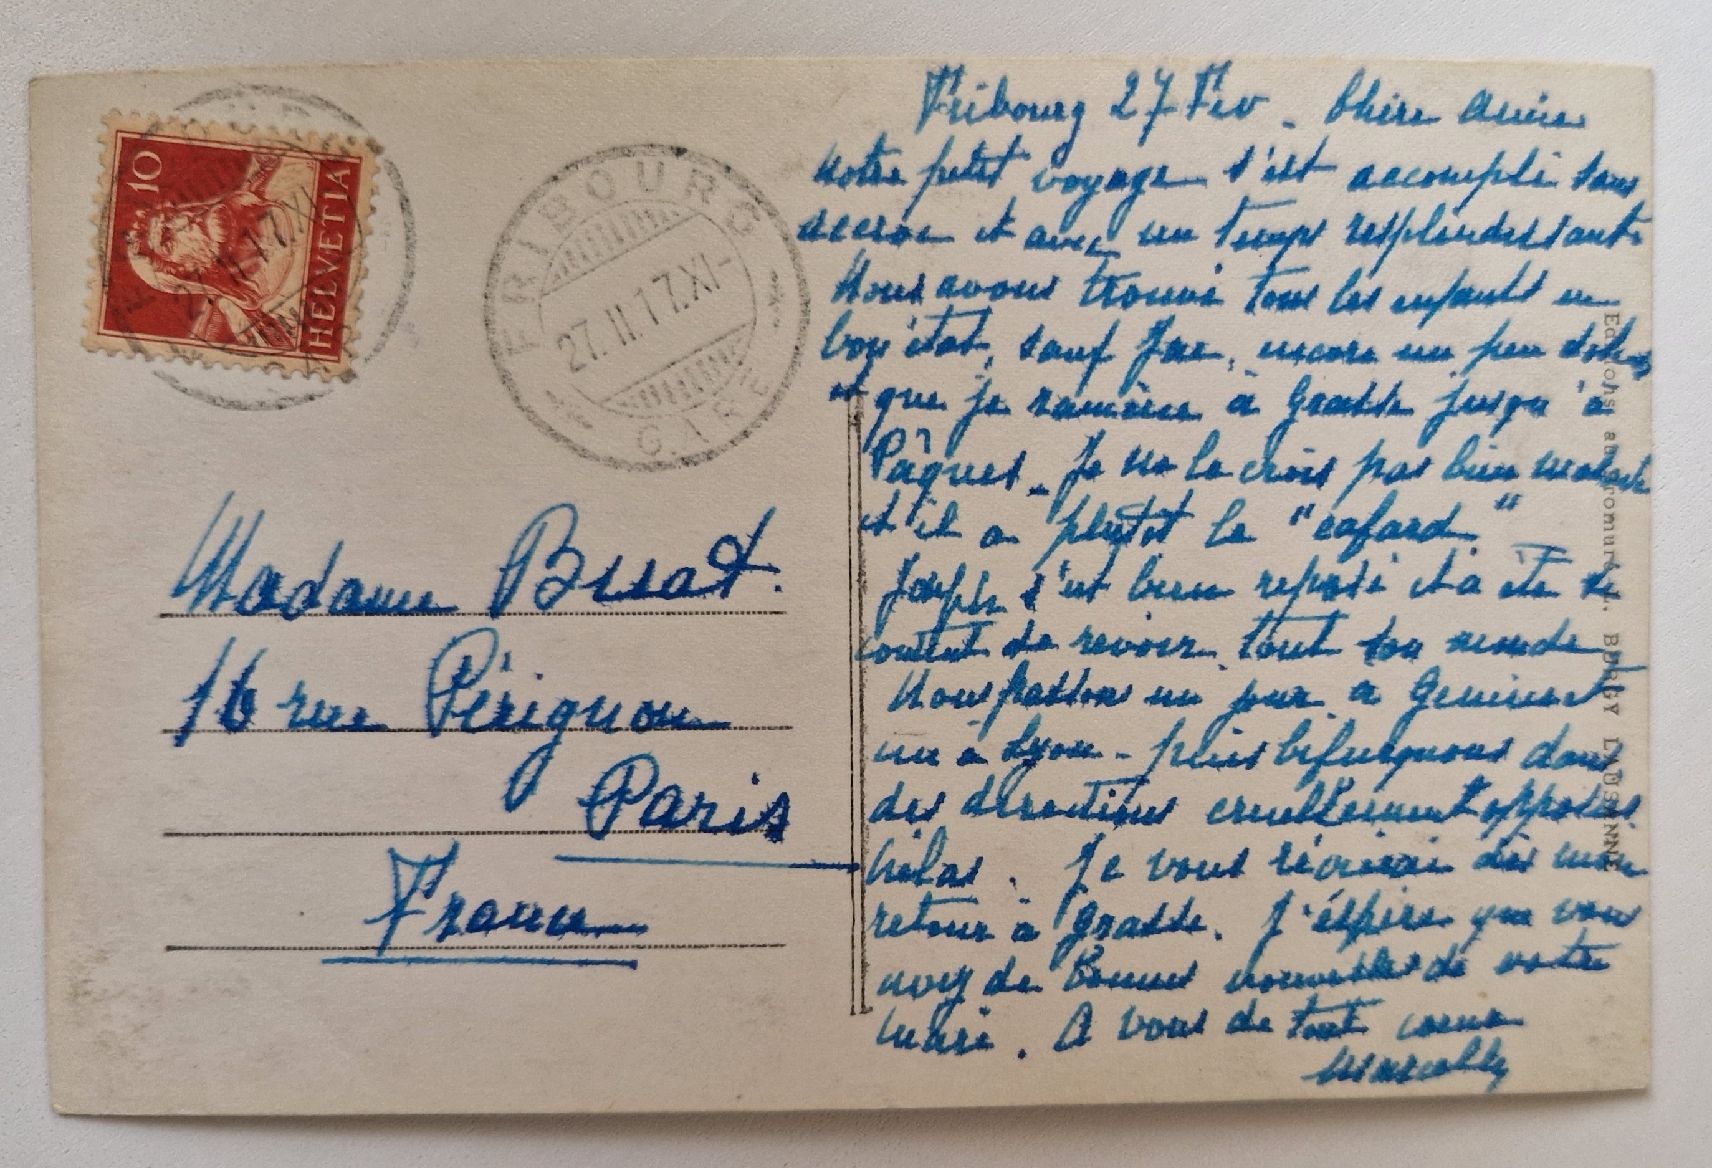 10
HELVETIA
FRIBOURG
27.II.17.XI-
GARE
Madame Busat.
16 rue Pérignon
Paris
France
Fribourg 27 Fev. Chère Amie
Notre petit voyage s'est accompli sans
accroc et avec un temps resplendissant.
Nous avons trouvé tous les enfants en
bon état, sauf Jac, encore un peu
et que je ramène à Grasse jusqu'à
Pâques. Je ne le crois pas bien malade
et il a plutôt le "cafard"
Joseph s'est bien reposé et a été
content de revoir tout son monde
Nous passons un jour à Genève et
un à Lyon - puis bifurquons dans
des directions cruellement opposées
hélas. Je vous récrirai dès mon
retour à Grasse. J'espère que vous
avez de bonnes nouvelles de votre
mari. A vous de tout coeur
Ed. Phot. BRUGY LAUSANNE